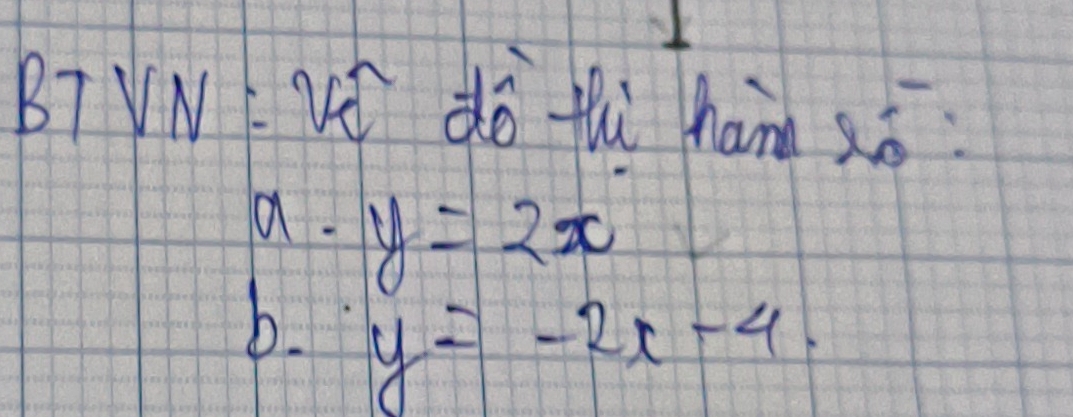 BTVN: Vẽ đồ thị hàm số:
a. y = 2x
b. y = -2x - 4.